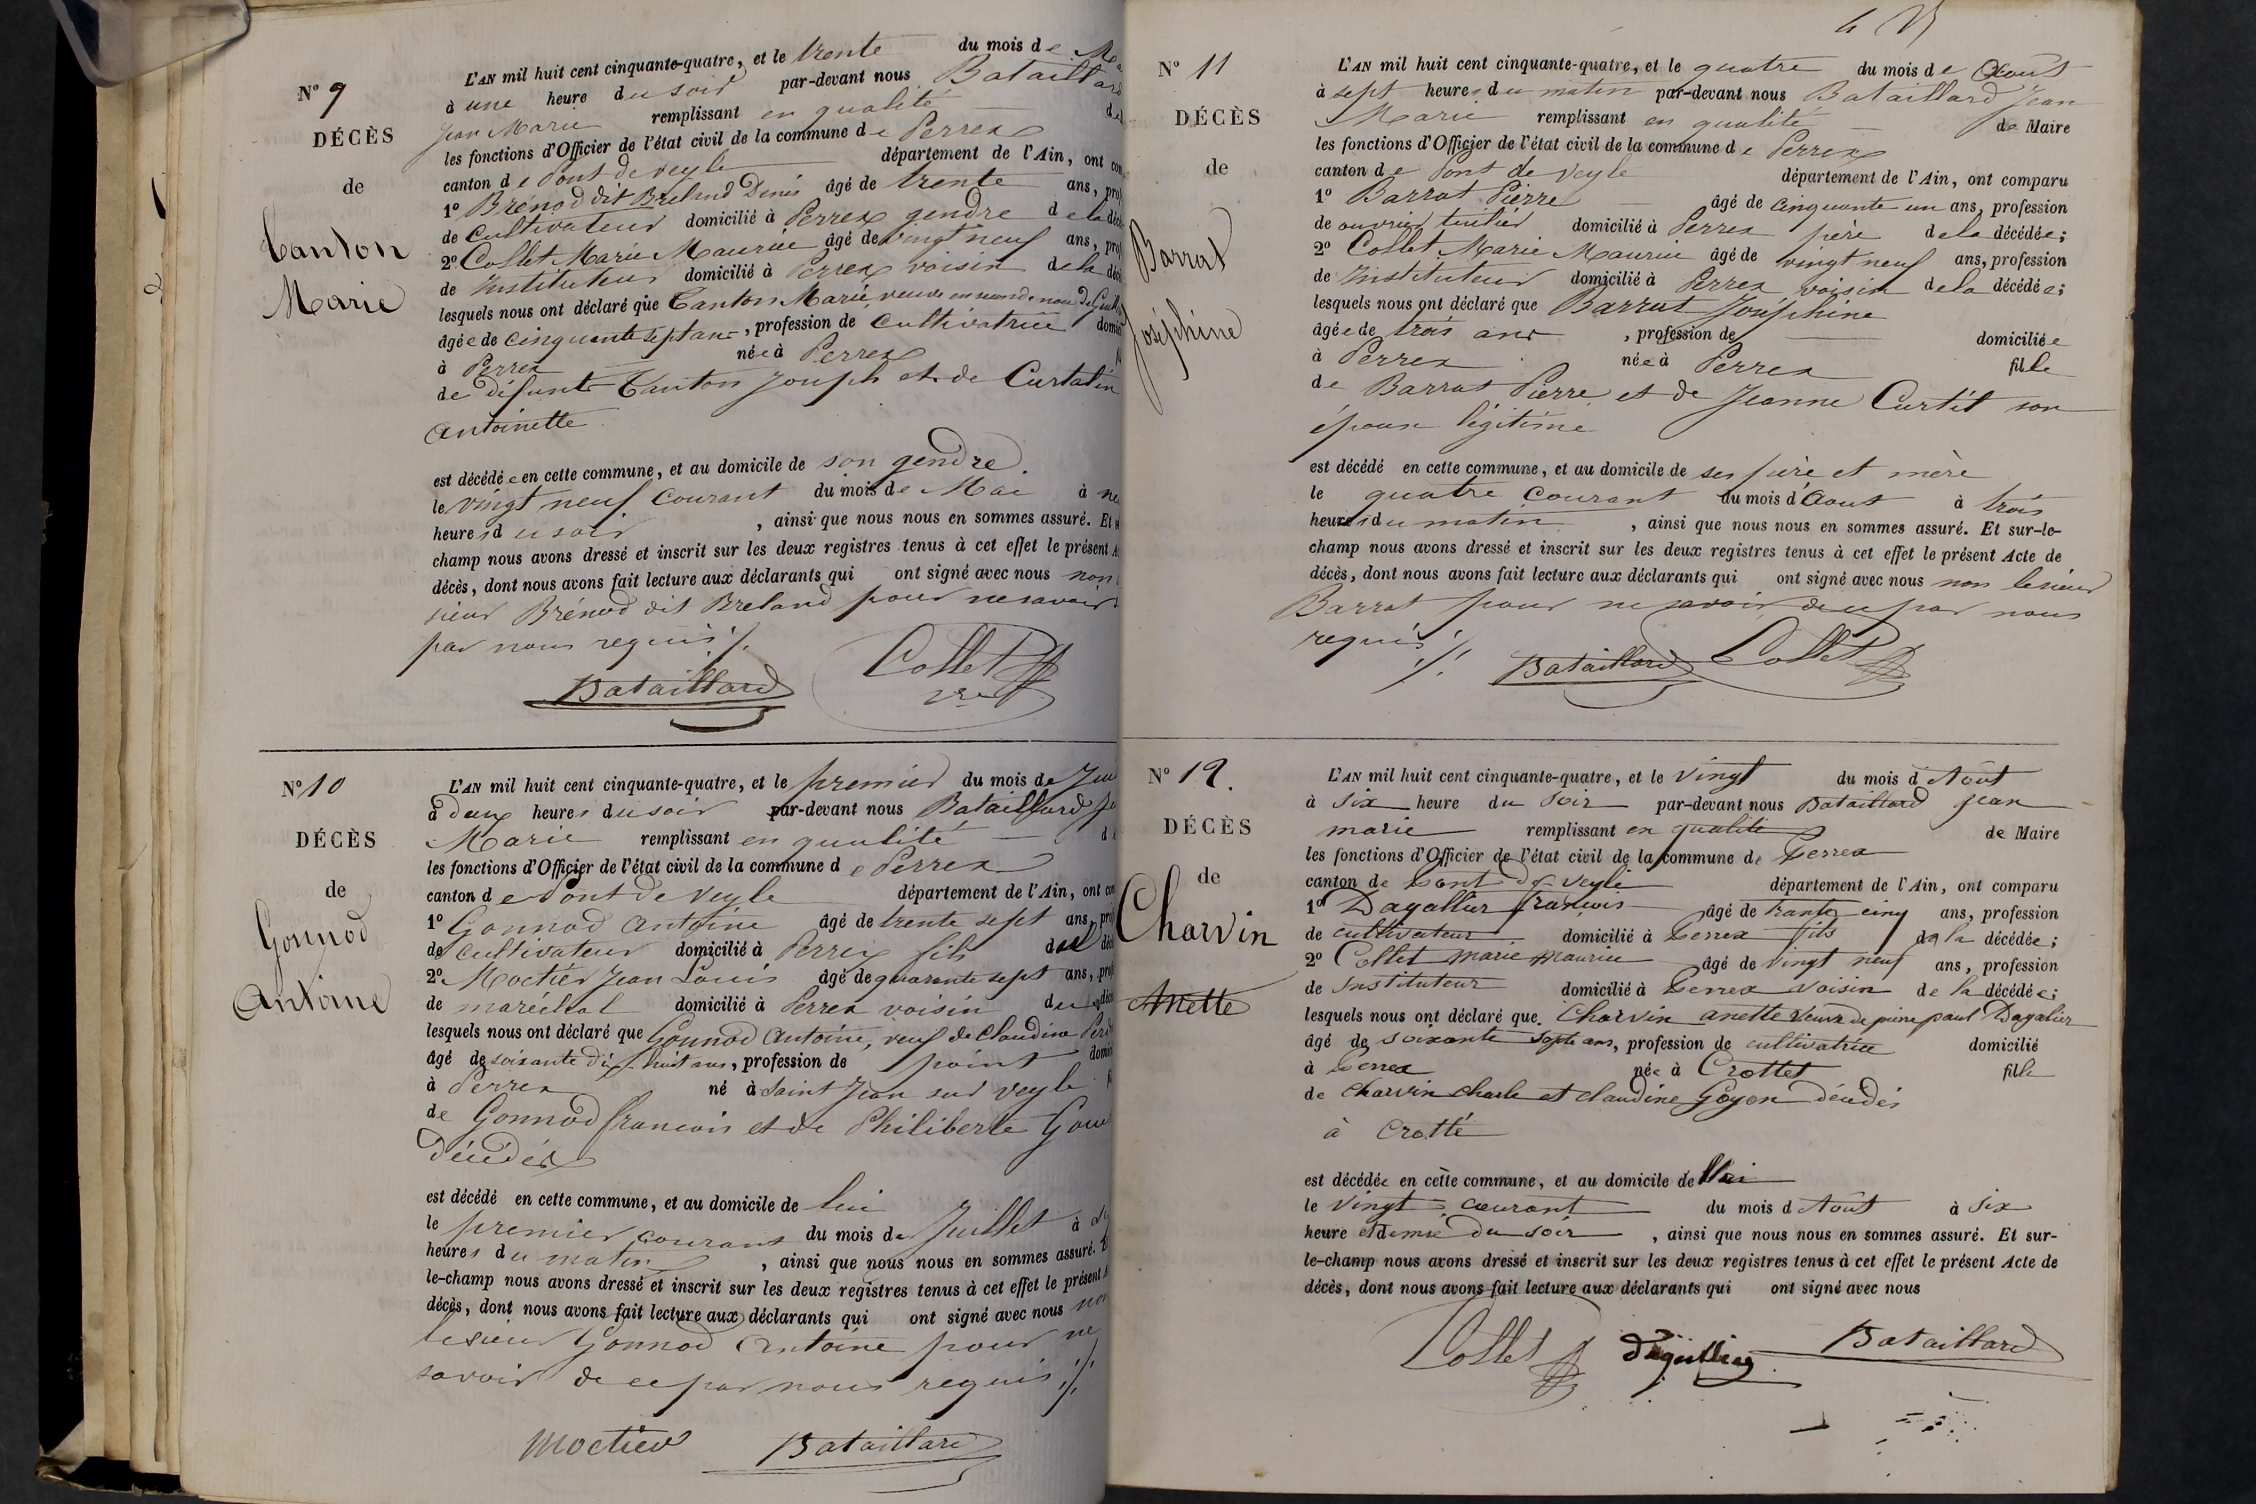 N° 9
DÉCÈS
de
Tanton
Marie
L'AN mil huit cent cinquante-quatre, et le trente du mois de
à une heure du soir par-devant nous Bataillard
Jean Marie remplissant en qualité
les fonctions d'Officier de l'état civil de la commune de Perrex
canton de Pont de veyle département de l'Ain, ont
1° Brenod dit Breland Denis âgé de trente ans,
de cultivateur domicilié à Perrex gendre de la
2° Collet Marie Maurice âgé de vingt neuf ans,
de Instituteur domicilié à Perrex voisin de la
lesquels nous ont déclaré que Tanton Marie veuve en secondes noces de
âgée de cinquante sept ans, profession de cultivatrice
à Perrex née à Perrex
de défunts Tanton Joseph et de Curtatin
antoinette
est décédée en cette commune, et au domicile de son gendre.
le vingt neuf courant du mois de Mai à
heures du soir, ainsi que nous nous en sommes assuré. Et
champ nous avons dressé et inscrit sur les deux registres tenus à cet effet le présent
décès, dont nous avons fait lecture aux déclarants qui ont signé avec nous non
sieur Brénod dit Breland pour ne savoir
par nous requis ./.
Bataillard Collet
N° 10
DÉCÈS
de
Gonnod
Antoine
L'AN mil huit cent cinquante-quatre, et le premier du mois de
à deux heures du soir par-devant nous Bataillard
Marie remplissant en qualité
les fonctions d'Officier de l'état civil de la commune de Perrex
canton de Pont de Veyle département de l'Ain, ont
1° Gonnod antoine âgé de trente sept ans,
de cultivateur domicilié à Perrex fils du
2° Moctier Jean Louis âgé de quarante sept ans,
de maréchal domicilié à Perrex voisin du
lesquels nous ont déclaré que Gonnod antoine, veuf de Claudine
âgé de soixante dix huit ans, profession de point
à Perrex né à Saint Jean sur veyle
de Gonnod francois et de Philiberte
décédés
est décédé en cette commune, et au domicile de lui
le premier courant du mois de Juillet à
heures du matin, ainsi que nous nous en sommes assuré.
le-champ nous avons dressé et inscrit sur les deux registres tenus à cet effet le présent
décès, dont nous avons fait lecture aux déclarants qui ont signé avec nous non
le sieur Gonnod antoine pour ne
savoir de ce par nous requis ./.
Moctier Bataillard
N° 11
DÉCÈS
de
Barrat
Joséphine
L'AN mil huit cent cinquante-quatre, et le quatre du mois de Aout
à sept heures du matin par-devant nous Bataillard Jean
Marie remplissant en qualité de Maire
les fonctions d'Officier de l'état civil de la commune de Perrex
canton de Pont de Veyle département de l'Ain, ont comparu
1° Barrat Pierre âgé de cinquante un ans, profession
de ouvrier tuilier domicilié à Perrex père de la décédée;
2° Collet Marie Maurice âgé de vingt neuf ans, profession
de Instituteur domicilié à Perrex voisin de la décédée;
lesquels nous ont déclaré que Barrat Joséphine
âgée de trois ans, profession de domiciliée
à Perrex née à Perrex fille
de Barrat Pierre et de Jeanne Curtit son
épouse légitime
est décédé en cette commune, et au domicile de ses père et mère
le quatre courant du mois d'Aout à trois
heures du matin, ainsi que nous nous en sommes assuré. Et sur-le-
champ nous avons dressé et inscrit sur les deux registres tenus à cet effet le présent Acte de
décès, dont nous avons fait lecture aux déclarants qui ont signé avec nous non le sieur
Barrat pour ne savoir de ce par nous
requis ./.
Bataillard Collet
N° 12.
DÉCÈS
de
Charvin
Anette
L'AN mil huit cent cinquante-quatre, et le vingt du mois d'Août
à six heure du soir par-devant nous Bataillard jean
marie remplissant en qualité de Maire
les fonctions d'Officier de l'état civil de la commune de Perrex
canton de Pont de veyle département de l'Ain, ont comparu
1° Dagallier francois âgé de trante cinq ans, profession
de cultivateur domicilié à Perrex fils de la décédée;
2° Collet marie maurice âgé de vingt neuf ans, profession
de Instituteur domicilié à Perrex voisin de la décédée;
lesquels nous ont déclaré que Charvin anette veuve de pierre paul Dagalier
âgé de soixante sept ans, profession de cultivatrice domicilié
à Perrex née à Crottet fille
de Charvin charle et claudine Goyon décédés
à Crotté
est décédée en cette commune, et au domicile de
le vingt courant du mois d'Août à six
heure et demie du soir, ainsi que nous nous en sommes assuré. Et sur-
le-champ nous avons dressé et inscrit sur les deux registres tenus à cet effet le présent Acte de
décès, dont nous avons fait lecture aux déclarants qui ont signé avec nous
Collet Bataillard